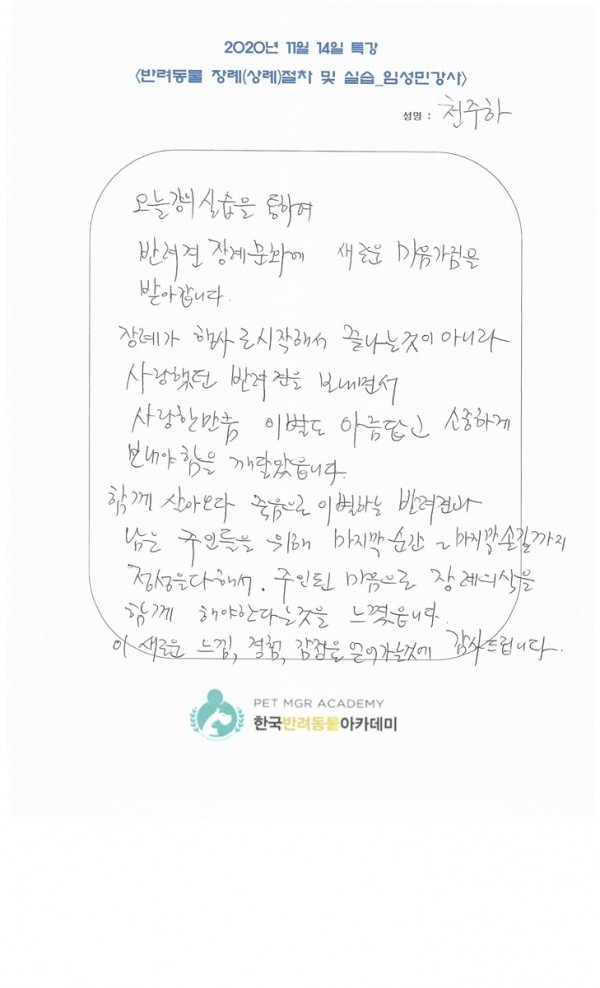 2020년 11월 14일 특강
<반려동물 장례(상례)절차 및 실습_임성민강사>
성명 : 천주하
오늘강의 실습을 통하여
반려견 장례문화에 새로운 마음가짐을
받아갑니다.
장례가 행사로시작해서 끝나는것이 아니라
사랑했던 반려견을 보내면서
사랑한만큼 이별도 아름답고 소중하게
보내야함을 깨달았습니다.
함께 살아오다 죽음으로 이별하는 반려견과
남는 주인들을 위해 마지막순간 마지막손길까지
정성을다해서. 주인된 마음으로 장례의식을
함께 해야한다는것을 느꼈습니다.
이 새로운 느낌, 경험, 감정을 얻어가는것에 감사드립니다.
PET MGR ACADEMY
한국반려동물아카데미